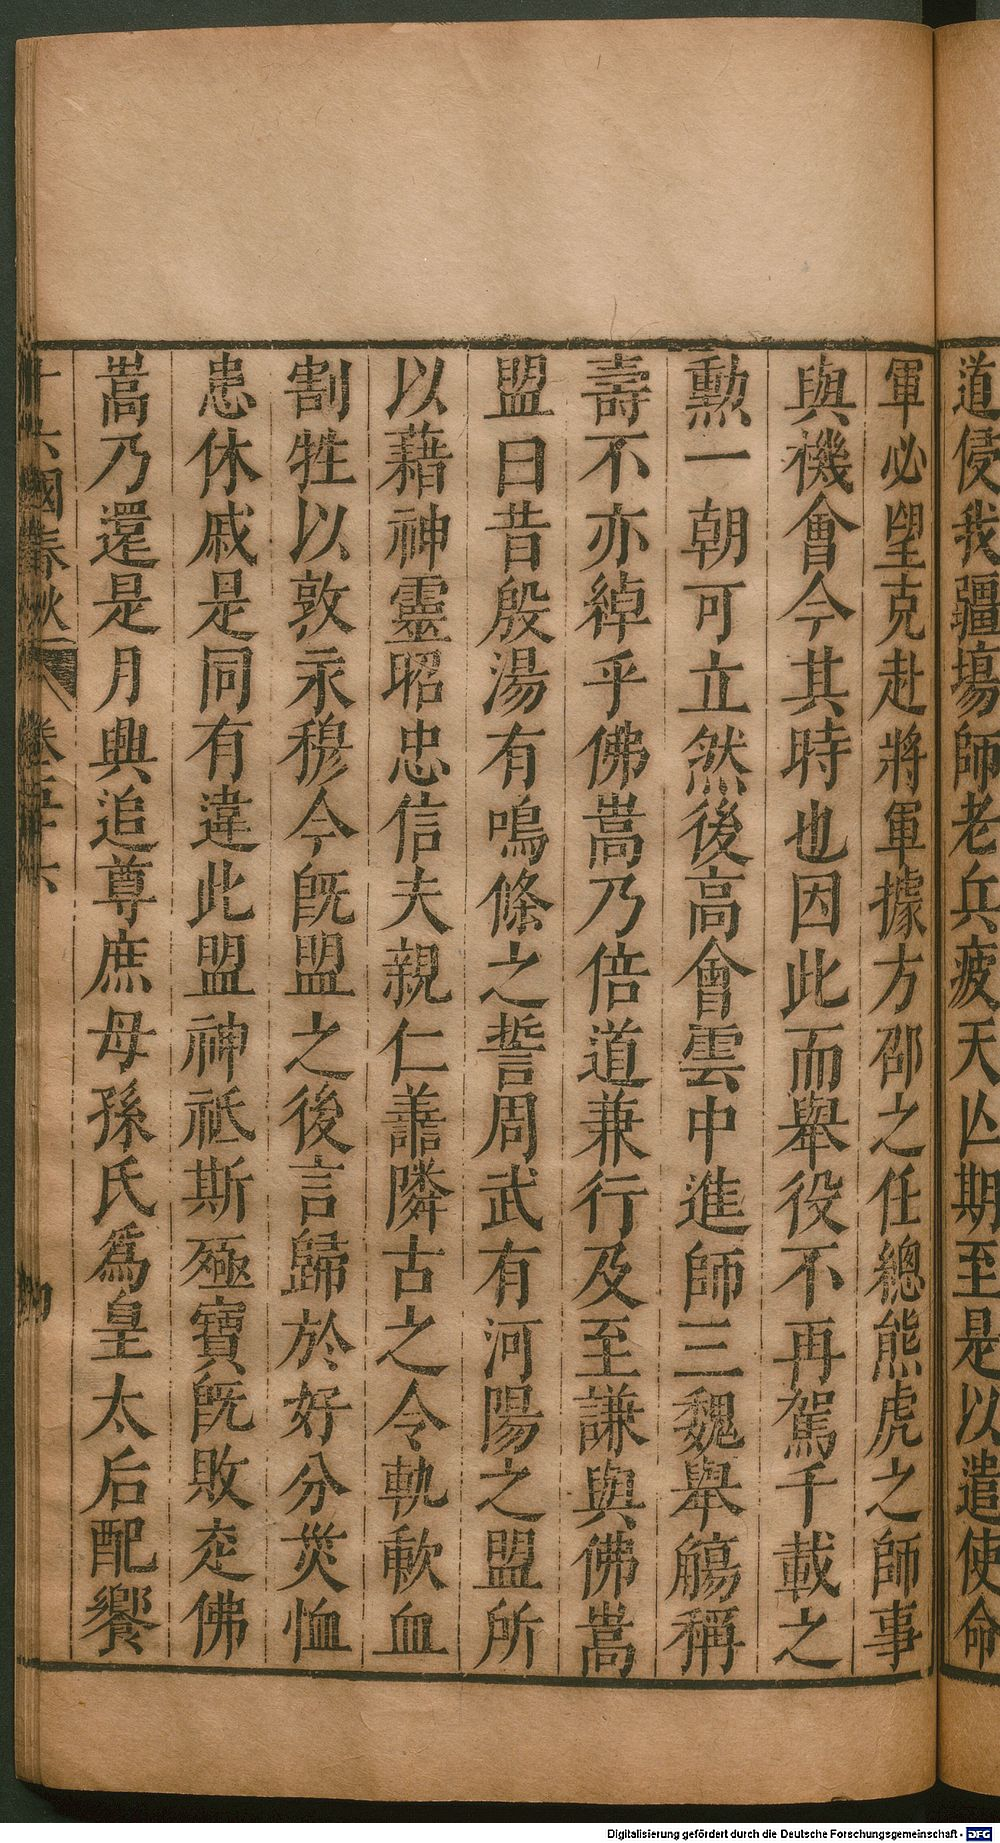 道侵我疆塲師老兵疲天凶期至是以遣使命
軍必望克赴將軍據方邵之任總熊虎之師事
與機會今其時也因此而舉役不再駕千載之
勲一朝可立然後高會雲中進師三魏舉觴稱
壽不亦綽乎佛嵩乃倍道兼行及至謙與佛嵩
盟曰昔殷湯有鳴條之誓周武有河陽之盟所
以藉神靈昭忠信夫親仁善隣古之令軌歃血
割牲以敦永穆今旣盟之後言歸於好分災恤
患休戚是同有違此盟神祗斯殛寶旣敗走佛
嵩乃還是月興追尊庶母孫氏爲皇太后配饗
十六國春秋 卷五十六
Digitalisierung gefördert durch die Deutsche Forschungsgemeinschaft - DFG